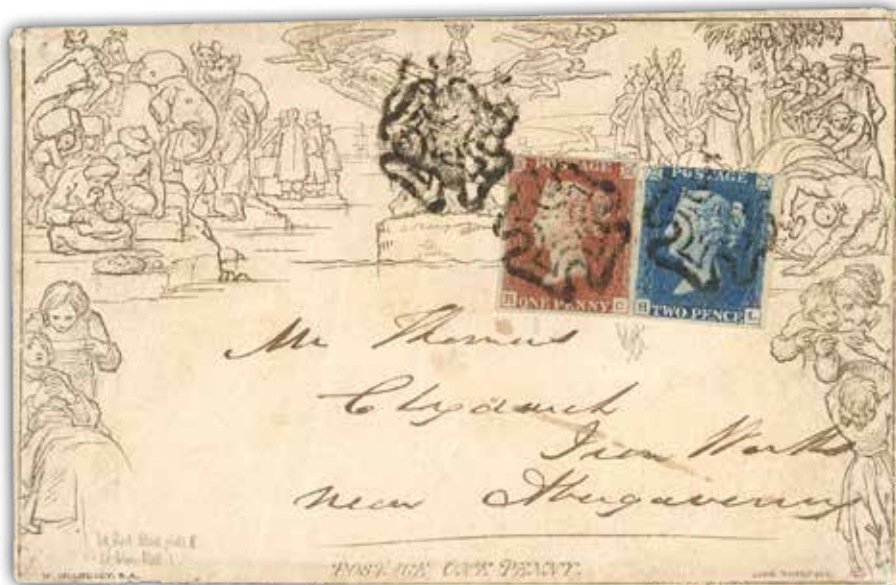 POSTAGE
ONE PENNY
POSTAGE
H TWO PENCE L
Mr Thomas
Clydach
Iron Works
near Abergavenny
POSTAGE ONE PENNY.
W. MULREADY, R.A.